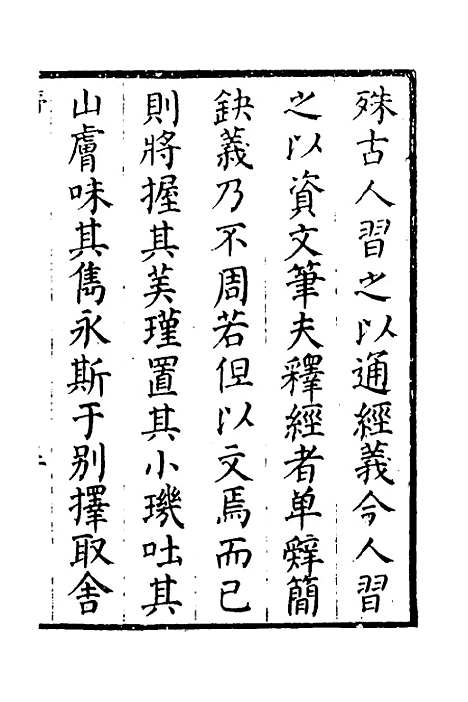 殊古人習之以通經義今人習
之以資文筆夫釋經者单辭簡
鈌義乃不周若但以文焉而已
則將握其美瑾置其小璣吐其
山膚味其雋永斯于别擇取舍